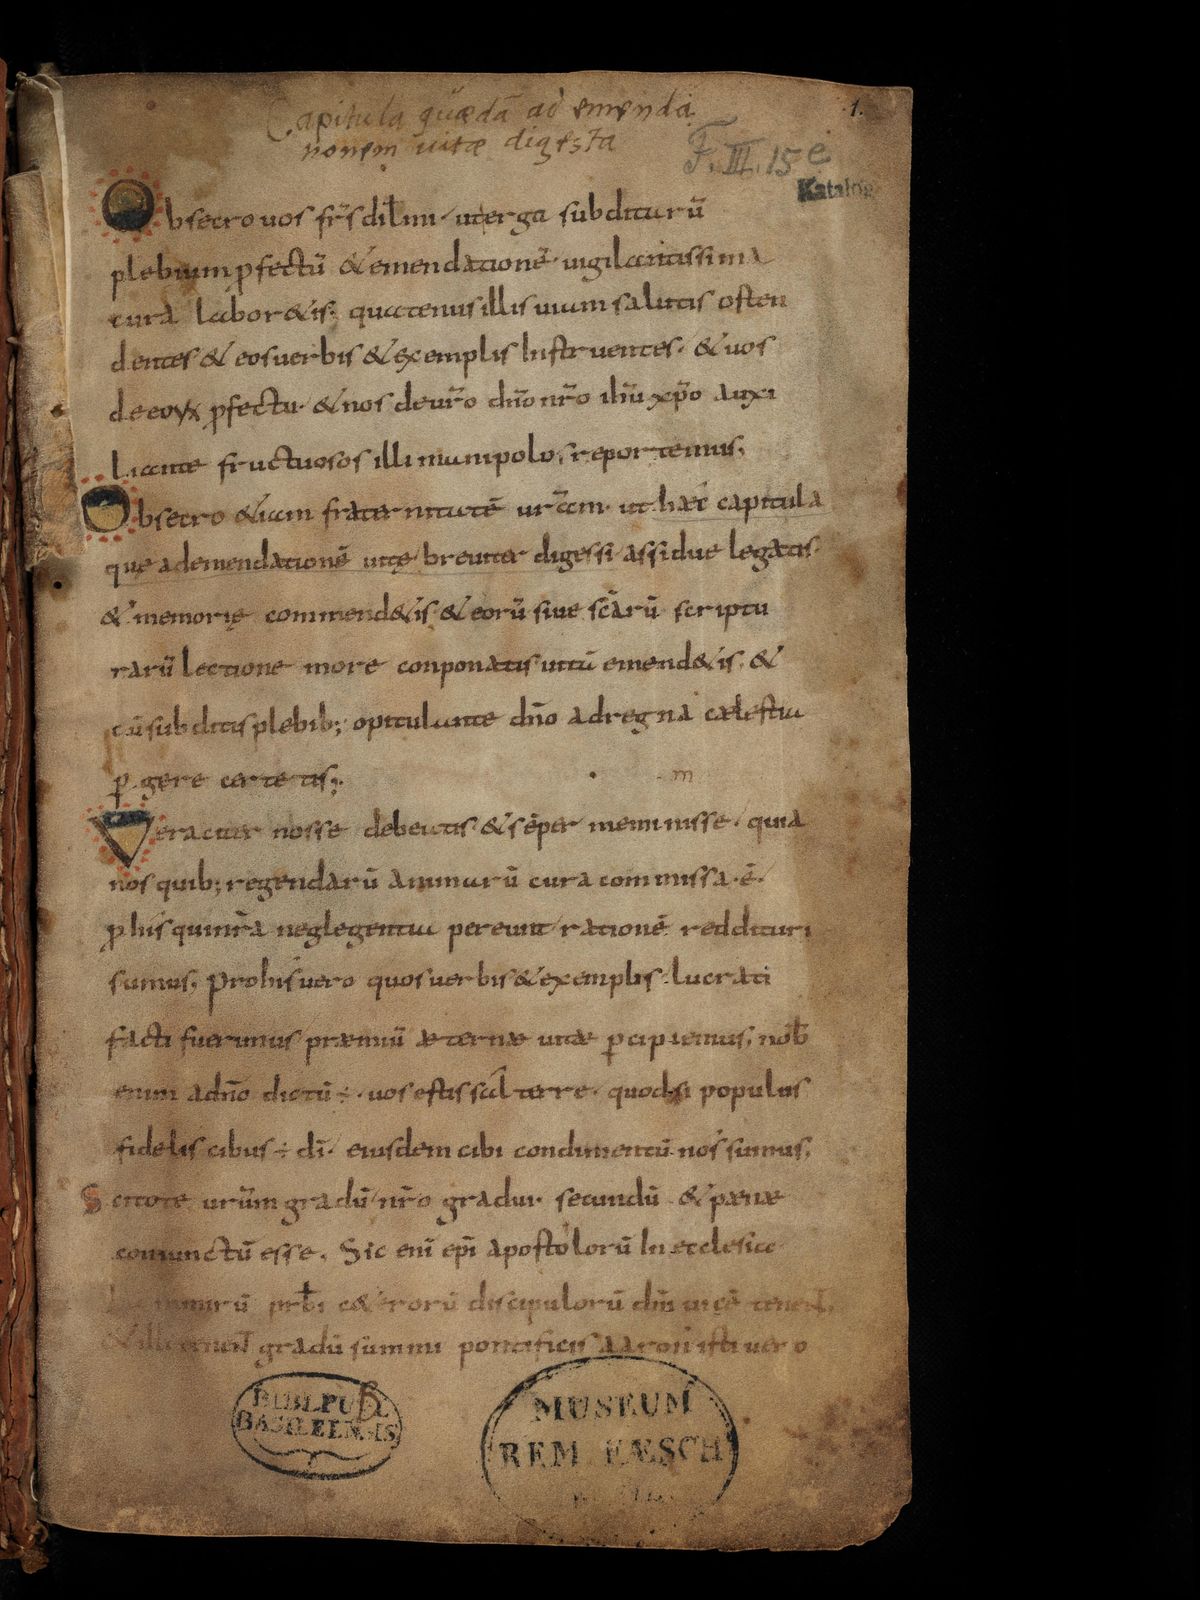 Capitula quædā ad emenda
nonem uitæ digesta
.1.
F. III. 15 e
Katalog
Obsecro uos fr̄s dil̄mi, ut erga subditurū
plebium ꝓfectū & emendationē uigilantissima
cura labor&is; quatenus illis uiam salutis osten
dentes & eos uerbis & exemplis Instruentes, & uos
de eoꝝ ꝓfectu & nos de ur̄o dn̄o nr̄o ihū xp̄o auxi
liante fructuosos illi manipolos reportemus;
Obsecro &iam fraternitatē ur̄am ut haec capitula
que ad emendationē uitę breuiter digessi assidue legatis
& memorię commend&is & eorū siue sc̄arū scriptu
rarū lectione more conponatis uitā emend&is; &
cū subditis plebib; opitulante dn̄o ad regna cælestia
ꝑgere certetis;
m
Veraciter nosse debeatis & sēper meminisse quia
nos quib; regendarū animarū cura commissa ē.
ꝓ his qui nr̄a neglegentia pereunt rationē reddituri
sumus, Pro his uero quos uerbis & exemplis lucrati
facti fuerimus præmiū æternæ uitæ ꝑcipiemus, nob̄
enim a dn̄o dictū ÷ uos estis sal terre quod si populus
fidelis cibus ÷ dī eiusdem cibi condimentū nos sumus;
Scitote ur̄um gradū nr̄o gradui secundū & pæne
coniunctū esse. Sic enī ep̄i apostolorū In ecclesia
prb̄i c&erorū discipulorū dn̄i uicē tenent,
& illi tenent gradū summi pontificis aaron isti uero
BIBL.PUBL
BASILEENSIS
MUSEUM
REM. FÆSCH